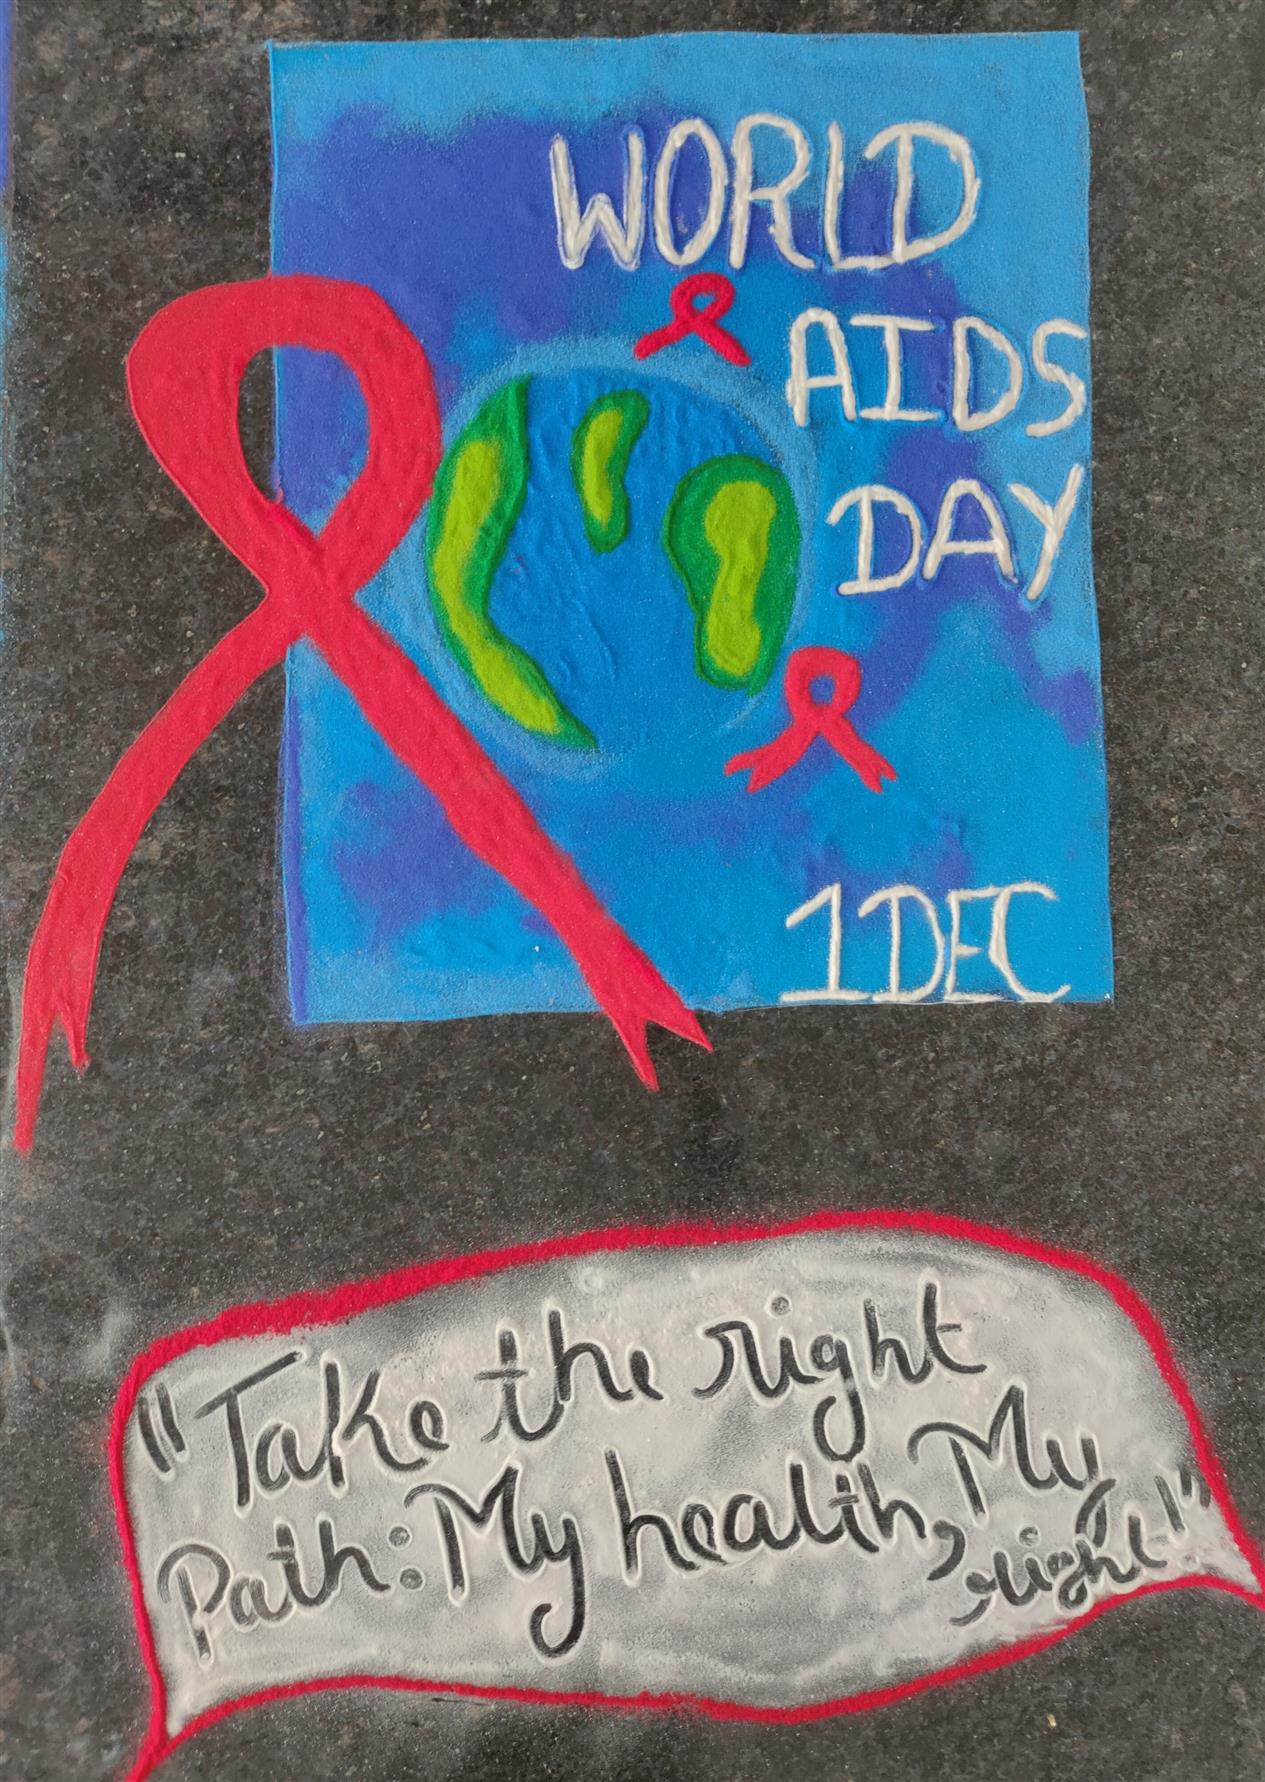 WORLD
AIDS
DAY
1 DEC
"Take the right
Path: My health, My
right!"